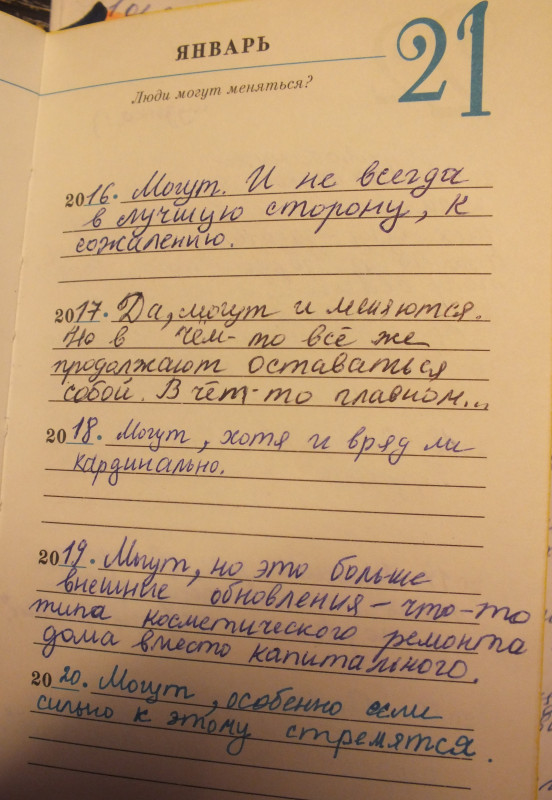 ЯНВАРЬ
21
Люди могут меняться?
2016. Могут. И не всегда
в лучшую сторону, к
сожалению.
2017. Да, могут и меняются.
Но в чём-то всё же
продолжают оставаться
собой. В чём-то главном...
2018. Могут, хотя и вряд ли
кардинально.
2019. Могут, но это больше
внешние обновления – что-то
типа косметического ремонта
дома вместо капитального.
2020. Могут, особенно если
сильно к этому стремятся.